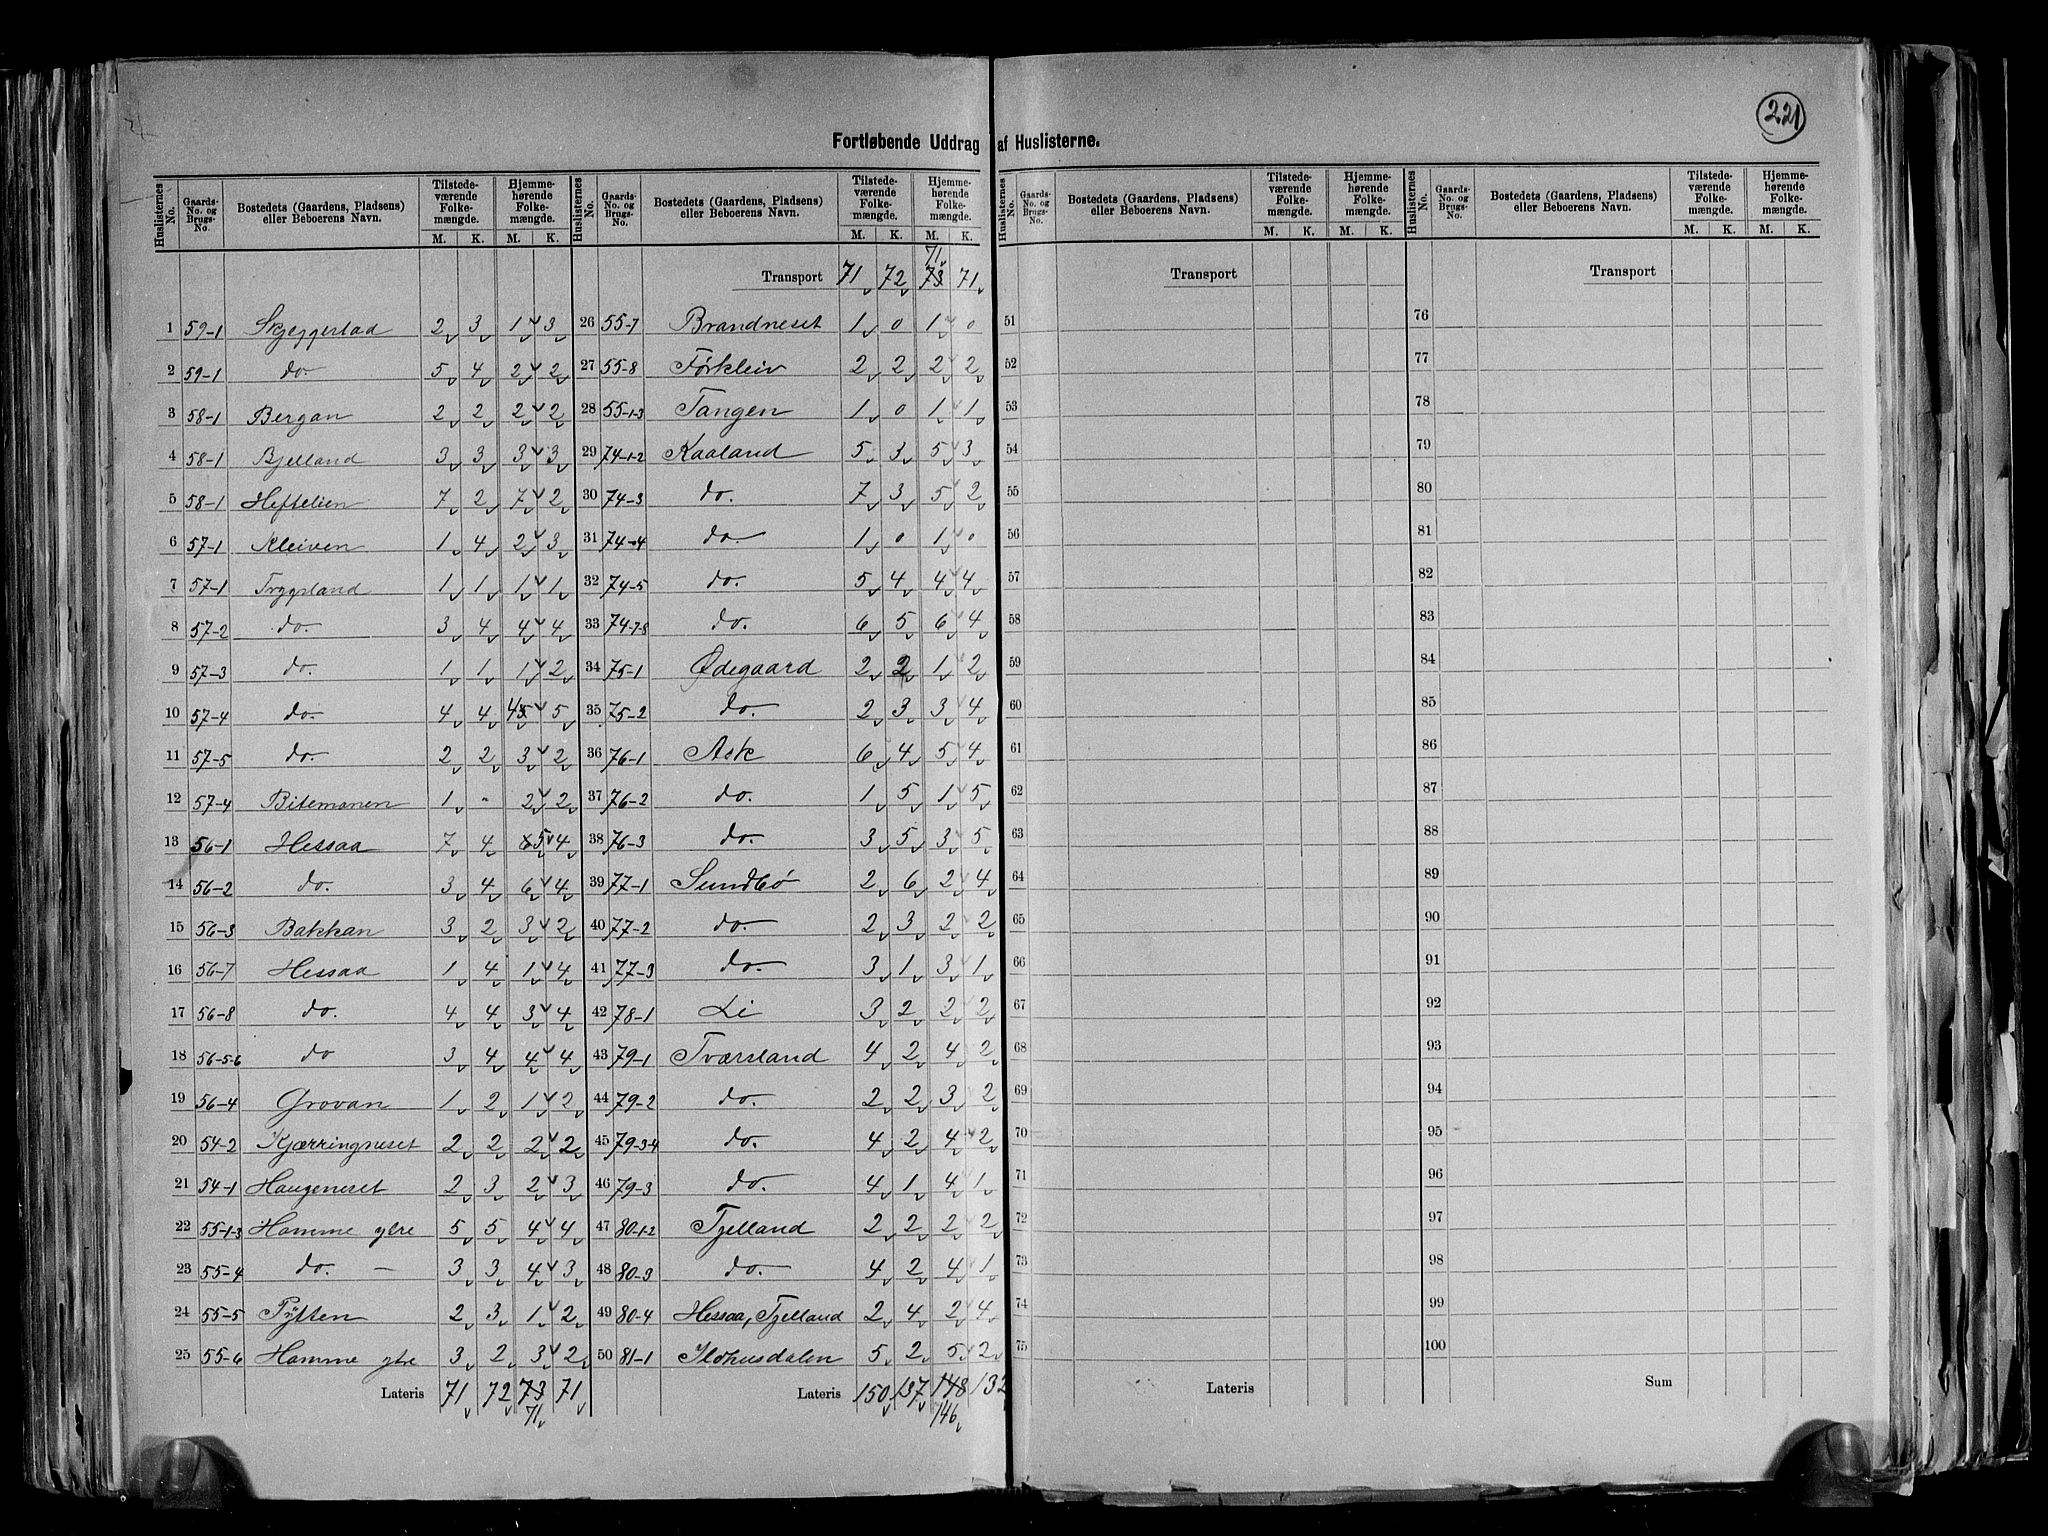 221
Fortløbende Uddrag af Huslisterne.
Huslisternes No. | Gaards-No. og Brugs-No. | Bostedets (Gaardens, Pladsens) eller Beboerens Navn. | Tilstedeværende Folkemængde. M. K. | Hjemmehørende Folkemængde. M. K.
Huslisternes No. | Gaards-No. og Brugs-No. | Bostedets (Gaardens, Pladsens) eller Beboerens Navn. | Tilstedeværende Folkemængde. M. K. | Hjemmehørende Folkemængde. M. K.
Huslisternes No. | Gaards-No. og Brugs-No. | Bostedets (Gaardens, Pladsens) eller Beboerens Navn. | Tilstedeværende Folkemængde. M. K. | Hjemmehørende Folkemængde. M. K.
Huslisternes No. | Gaards-No. og Brugs-No. | Bostedets (Gaardens, Pladsens) eller Beboerens Navn. | Tilstedeværende Folkemængde. M. K. | Hjemmehørende Folkemængde. M. K.
1 59-1 Skjeggestad 2 3 1 3
2 59-1 do. 5 4 2 2
3 58-1 Bergan 2 2 2 2
4 58-1 Bjelland 3 3 3 3
5 58-1 Heftelien 7 2 7 2
6 57-1 Kleiven 1 4 2 3
7 57-1 Trygsland 1 1 1 1
8 57-2 do. 3 4 4 4
9 57-3 do. 1 1 1 2
10 57-4 do. 4 4 4 5 5
11 57-5 do. 2 2 3 2
12 57-4 Bitemonen 1 " 2 2
13 56-1 Hessaa 7 4 6 5 4
14 56-2 do. 3 4 6 4
15 56-3 Bakkan 3 2 3 2
16 56-7 Hessaa 1 4 1 4
17 56-8 do. 4 4 3 4
18 56-5-6 do 3 4 4 4
19 56-4 Grovan 1 2 1 2
20 54-2 Kjærringneset 2 2 2 2
21 54-1 Haugeneset 2 3 2 3
22 55-1-3 Homme ytre 5 5 4 4
23 55-4 do. — 3 3 4 3
24 55-5 Pytten 2 3 1 2
25 55-6 Homme ytre 3 2 3 2
Lateris 71 72 73 71
71
71
Transport 71 72 73 71
26 55-7 Brandneset 1 0 1 0
27 55-8 Førkleiv 2 2 2 2
28 55-1-3 Tangen 1 0 1 1
29 74-1-2 Kaaland 5 3 5 3
30 74-3 do. 7 3 5 2
31 74-4 do. 1 0 1 0
32 74-5 do. 5 4 4 4
33 74-7-8 do. 6 5 6 4
34 75-1 Ødegaard 2 2 1 2
35 75-2 do. 2 3 3 4
36 76-1 Ask 6 4 5 4
37 76-2 do. 1 5 1 5
38 76-3 do. 3 5 3 5
39 77-1 Sundbø 2 6 2 4
40 77-2 do. 2 3 2 2
41 77-3 do. 3 1 3 1
42 78-1 Li 3 2 2 2
43 79-1 Tværsland 4 2 4 2
44 79-2 do. 2 2 3 2
45 79-3-4 do. 4 2 4 2
46 79-3 do. 4 1 4 1
47 80-1-2 Tjelland 2 2 2 2
48 80-3 do. 4 2 4 1
49 80-4 Hessaa, Tjelland 2 4 2 4
50 81-1 5 2 5 2
Lateris 150 137 148 132
146
Transport
51
52
53
54
55
56
57
58
59
60
61
62
63
64
65
66
67
68
69
70
71
72
73
74
75
Lateris
Transport
76
77
78
79
80
81
82
83
84
85
86
87
88
89
90
91
92
93
94
95
96
97
98
99
100
Sum